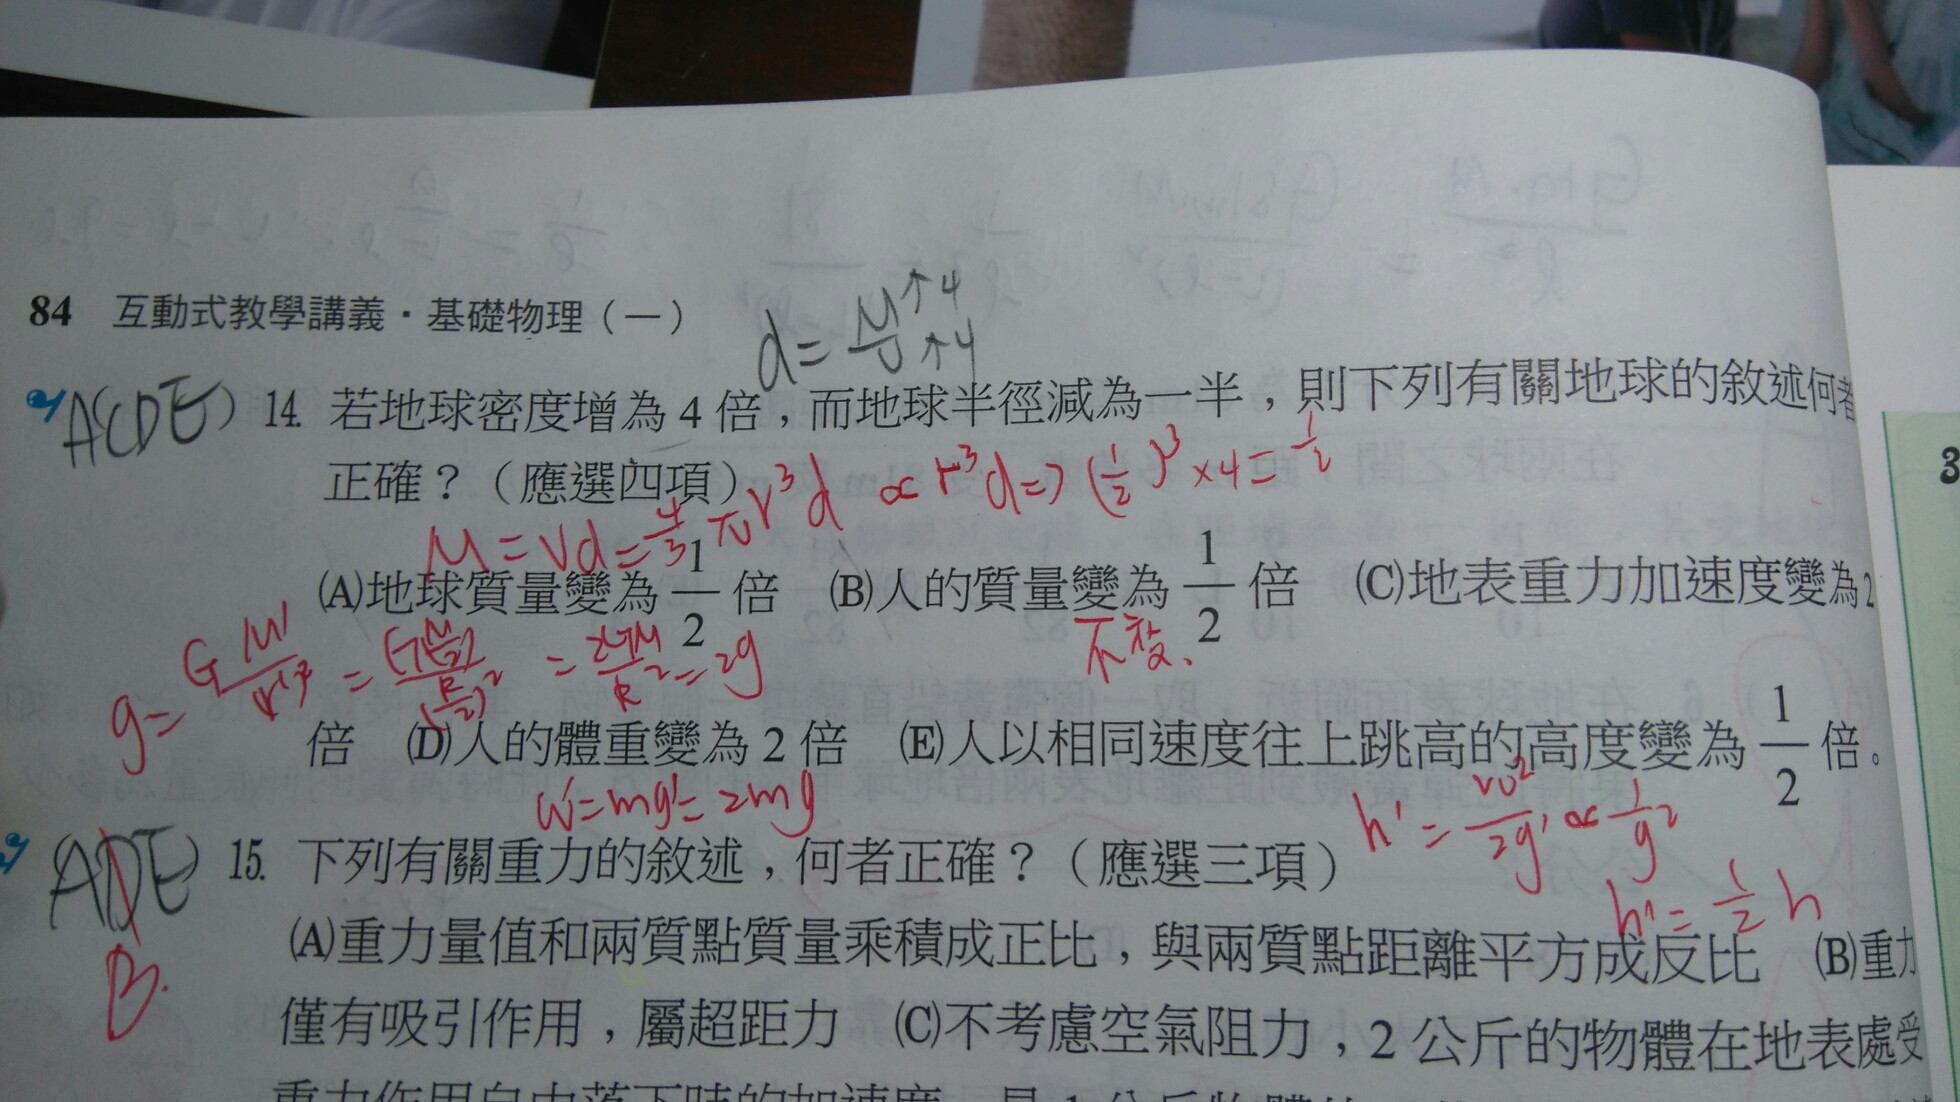 84 互動式教學講義・基礎物理（一）
d = M↑4 / V↑4
ACDE ) 14. 若地球密度增為 4 倍，而地球半徑減為一半，則下列有關地球的敘述何者
正確？（應選四項）
M = Vd = 4/3 π r³ d ∝ r³ d => (1/2)³ × 4 = 1/2
(A)地球質量變為 1/2 倍 (B)人的質量變為 1/2 倍 (C)地表重力加速度變為 2
不變、
g = G M' / r'² = = 2GM / R² = 2g
倍 (D)人的體重變為 2 倍 (E)人以相同速度往上跳高的高度變為 1/2 倍。
W' = mg' = 2mg
h' = v₀² / 2g' ∝
h' = 1/2 h
(ADE) 15. 下列有關重力的敘述，何者正確？（應選三項）
B.
(A)重力量值和兩質點質量乘積成正比，與兩質點距離平方成反比 (B)重力
僅有吸引作用，屬超距力 (C)不考慮空氣阻力，2 公斤的物體在地表處受
重力作用自由落下時的加速度
3